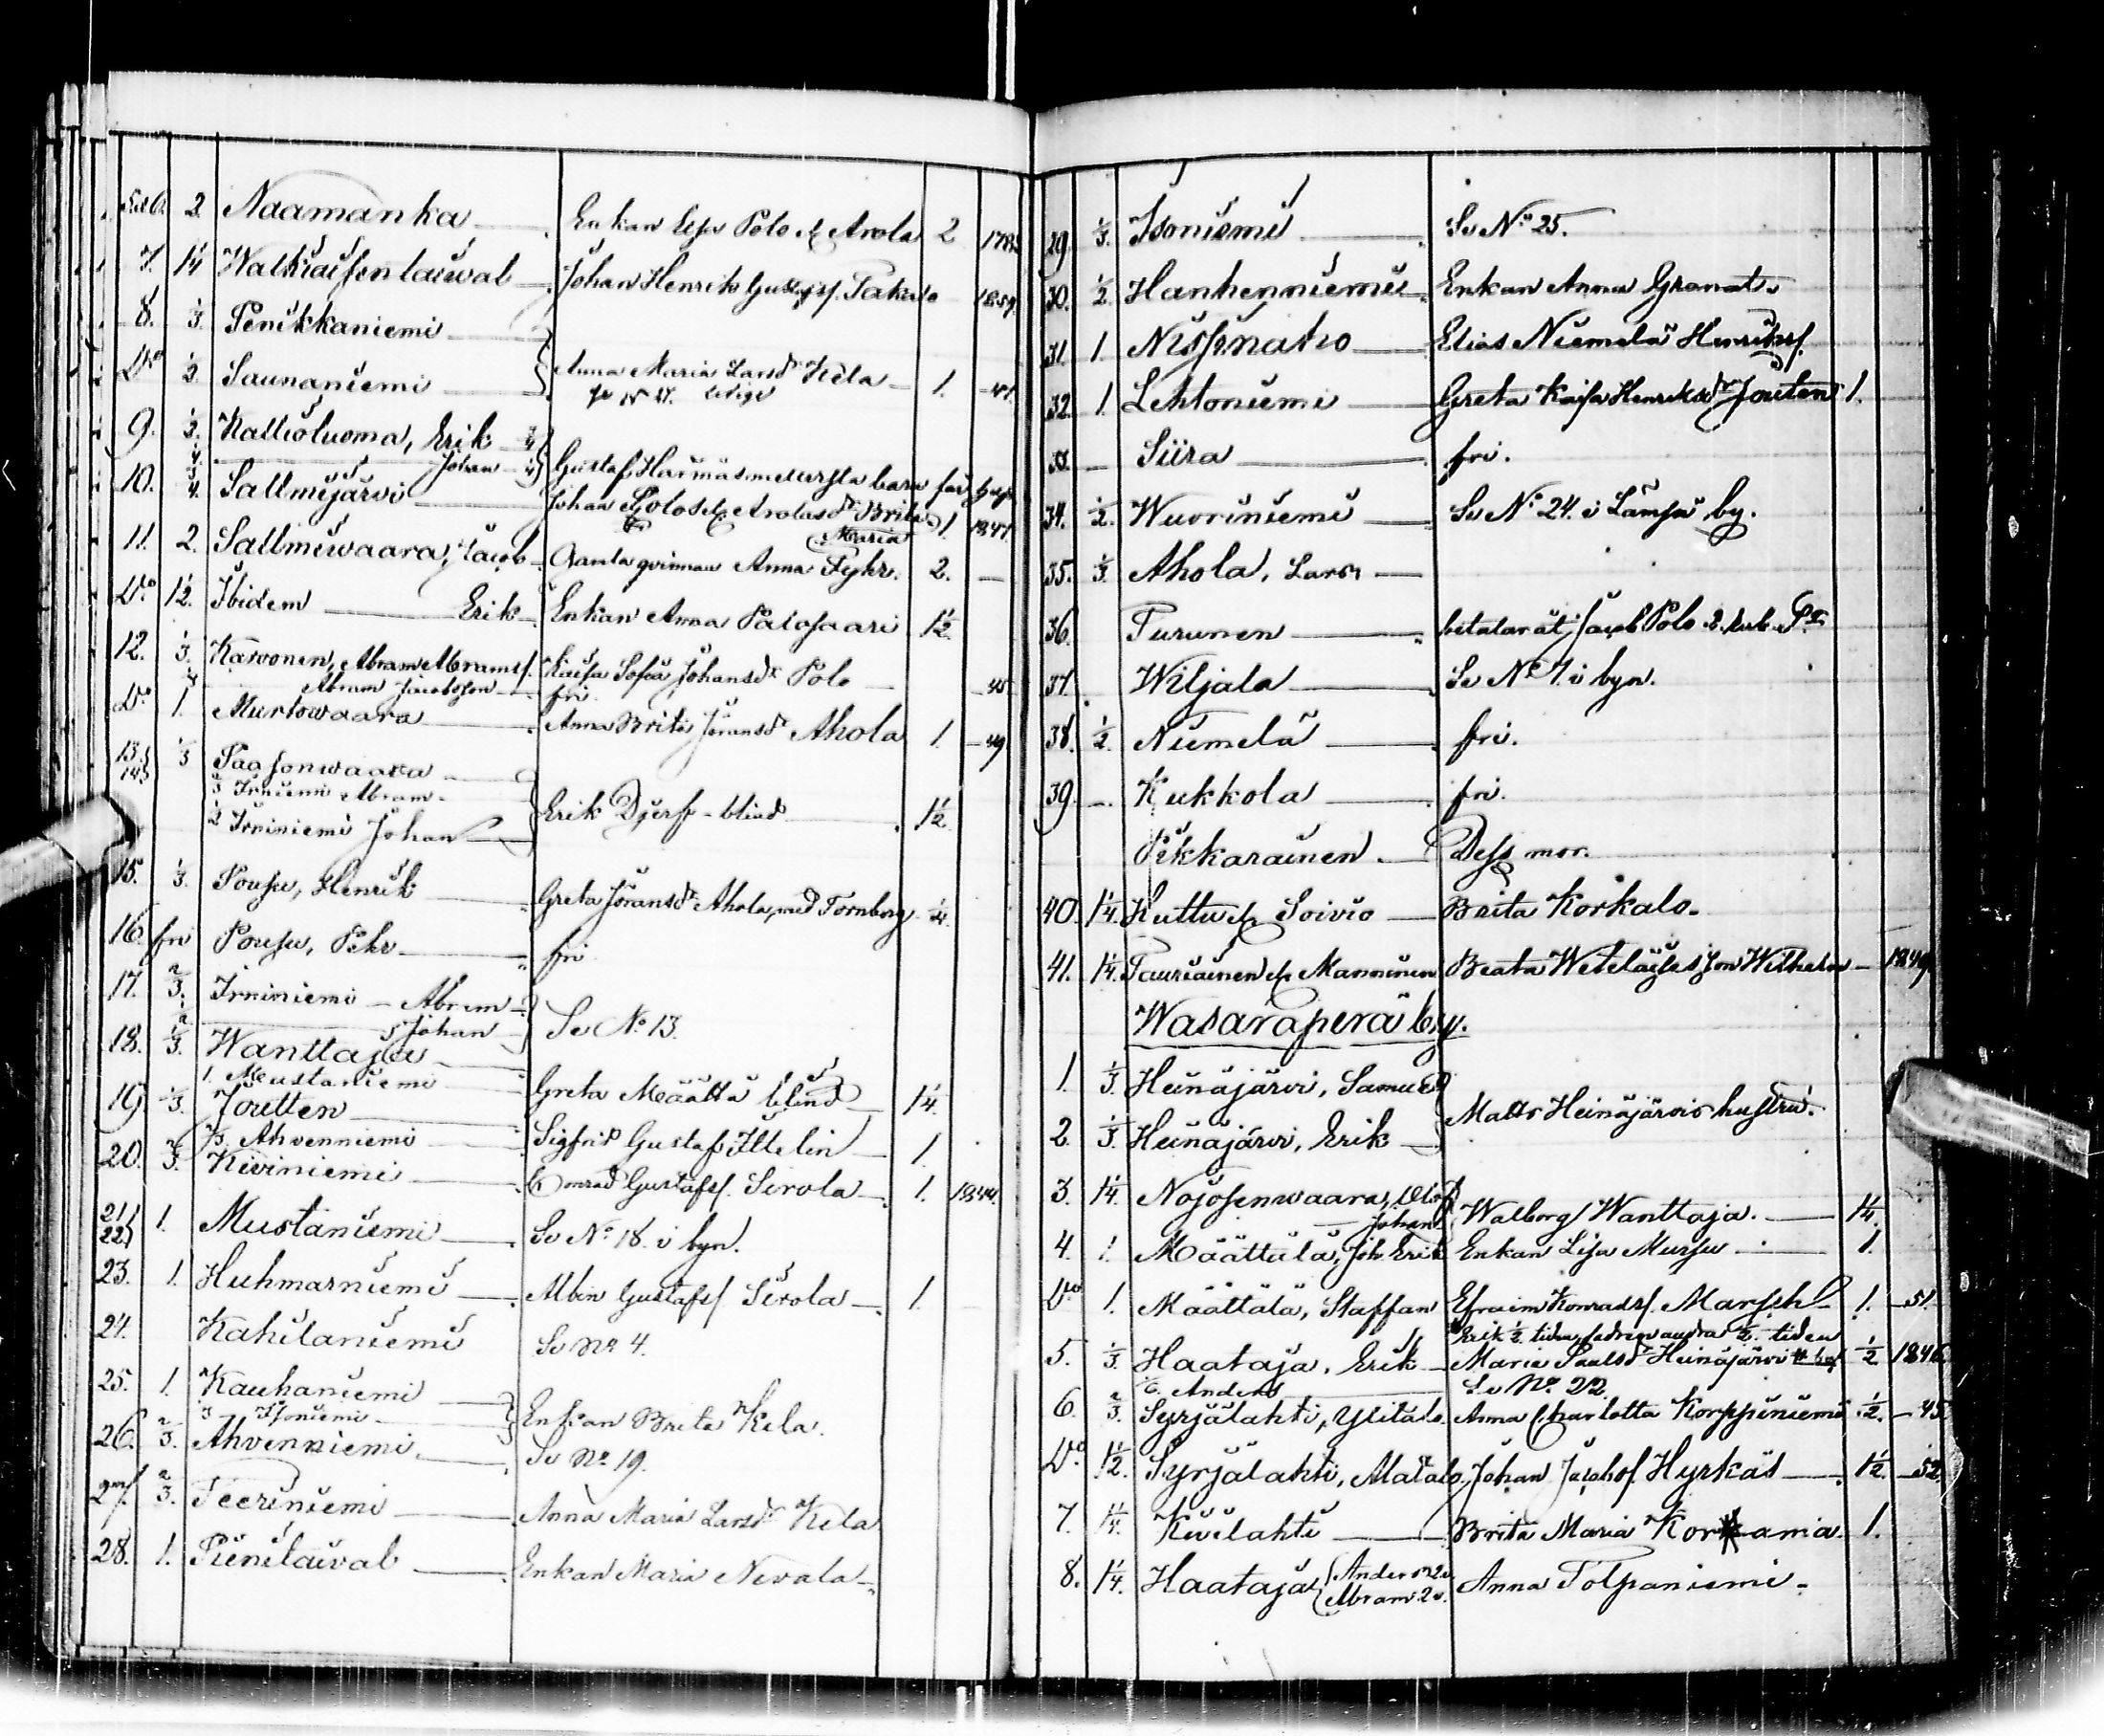 5 & 6. 2. Naamanka — Enkan Lisa Polo & Arola 2 1783
7. 1¼ Walkiaisenlaiwal — Johan Henrik Gustafss. Takalo 1859.
8. ⅓. Penikkaniemi —
Do ½. Saunaniemi — Anna Maria Larsdr Kela — 1. — 47.
Se No 27. ledige
9. ½. Kallioluoma, Erik ¾
¼. — Johan ¼ Gustaf Harmäs
10. ¾. Sallmijärvi — Johan Polos & Arolas dr Brita 1. 1847.
Maria
11. 2. Sallmiwaara, Jacob — Gamla qvinnan Anna Fyhr. 2. —
Do 1½. Ibidem — Erik — Enkan Anna Palosaari 1½.
12. ⅓. Karvonen, Abram Abramss. Kaisa Sofia Johansdr Polo — 45
Abram Jacobsson — fri.
Do 1. Murtowaara — Anna Brita Jöransdr Ahola 1. — 49
13. 14. ⅓ Paasonwaara —
⅔ Irniniemi Abram —
½ Irniniemi Johan — Erik Djerf - blind — 1½.
15. ⅓. Pousu, Henrik — Greta Jöransdr Ahola, med Tornberg ¼.
16. fri Pousu, Pehr — fri
17. ⅔. Irniniemi — Abram —
½ — Johan — Se No 13.
18. ⅓. Wanttaja —
1. Mustaniemi — Greta Määttä blind — 1¼.
19. ⅓. Joutten —
⅔. Ahvenniemi — Sigfrid Gustafs Ittelin — 1.
20. ⅔. Kiviniemi — Conrad Gustafss. Sirola — 1. 1844.
21. 22. 1. Mustaniemi — Se No 18. i byn.
23. 1. Huhmarniemi — Albin Gustafss. Sirola — 1.
24. Kahilaniemi Se No 4.
25. 1. Kauhaniemi —
⅓ Isoniemi — Enkan Brita Kela.
26. ⅔. Ahvenniemi — Se No 19.
27. ⅔. Teeriniemi — Anna Maria Larsdr Kela
28. 1. Pienilaival — Enkan Maria Nevala —
29. ⅓. Isoniemi — Se No 25.
30. ½. Hanhenniemi — Enkan Anna Granat.
31. 1 Nissinaho — Elias Niemelä Henrikss.
32. 1. Lehtoniemi — Greta Kaisa Henriksdr Jouten 1.
33. — Siira — fri.
34. ½. Wuoriniemi — Se No 24. i Lämsä by.
35. ⅓. Ahola, Lars —
36. Turunen — betalar åt Jacob Polo 2. rub. Sr.
37. Wiljala — Se No 1. i byn.
38. ½. Niemelä — fri.
39. — Kukkola — fri.
Pikkarainen — Dess mor.
40. 1¼. Kuttu & Soivio — Brita Korkalo.
41. 1¼. Tauriainen & Manninen Beata Weteläises son Wilhelm — 1849
Wasaraperä by.
1. ⅓. Heinäjärvi, Samuel
2. ⅓. Heinäjärvi, Erik — Matts Heinäjärvis hustru.
3. 1¼. Nojosenwaara, Olof
— Johan Walborg Wanttaja. — 1¼.
4. 1. Määttälä, Joh. Erik Enkan Lisa Mursu — 1.
Do 1. Määttälä, Staffan Efraim Konradss. Marsch — 1. — 51.
Erik ½ tiden, fadren andra ½ tiden
5. ⅓. Haataja, Erik — Maria Paulsdr Heinäjärvi ½ 1846.
Anders — Se No 22.
6. ⅔. Syrjälahti, Ylitalo. Anna Charlotta Korppiniemi ½. — 45.
Do 1½. Syrjälahti, Alatalo, Johan Jacobss. Hyrkäs — 1½. — 52.
7. 1¼. Kivilahti — Brita Maria 1.
8. 1¼. Haataja Anders 2
Abram 2 Anna Tolpaniemi.